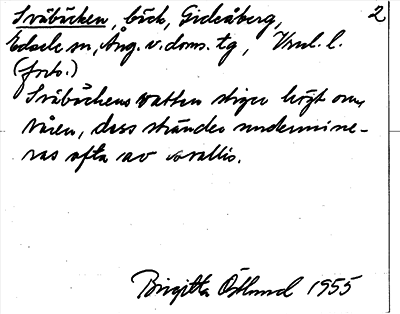 Svåbäcken, bäck, Gideåberg, 2
Edsele sn, Ång. v. doms. tg,
(forts.)
Svåbäckens vatten stiger högt om
våren, dess stränder undermine-
ras ofta av
Birgitta Östlund 1955